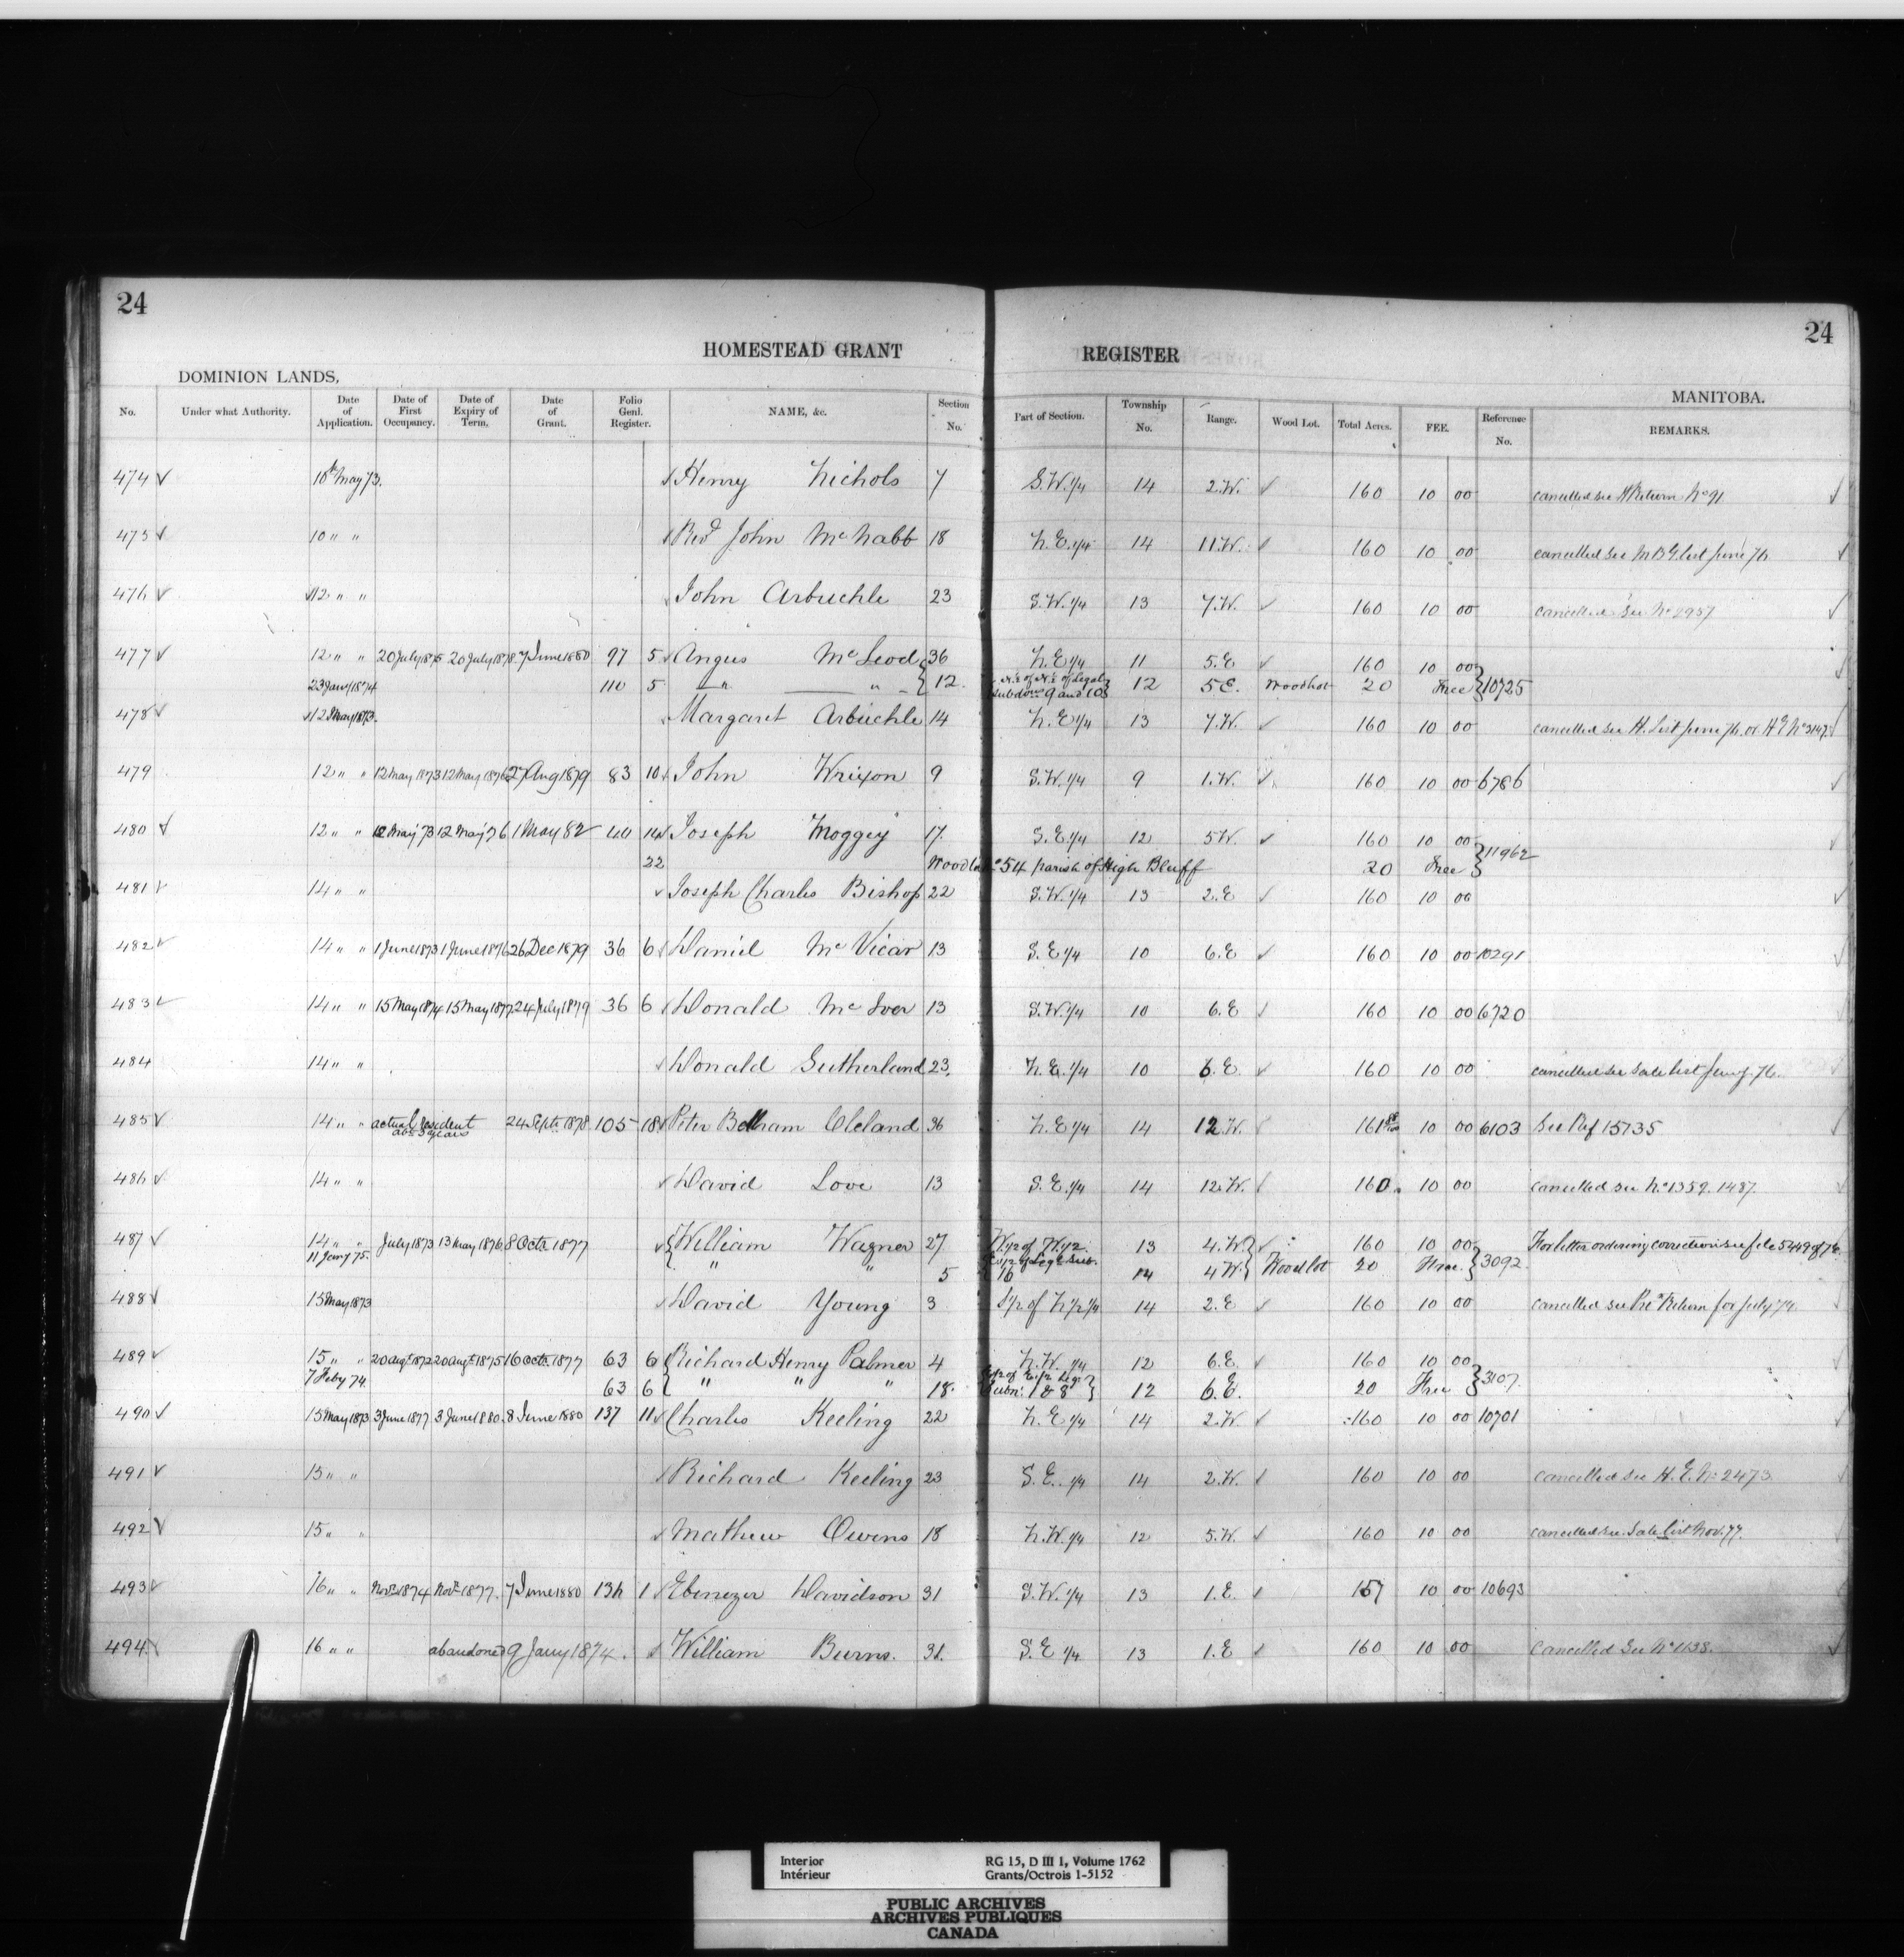 24
24
HOMESTEAD GRANT REGISTER
DOMINION LANDS,
MANITOBA.
No. Under what Authority. Date of Application. Date of First Occupancy. Date of Expiry of Term. Date of Grant. Folio Genl. Register. NAME, &c. Section No. Part of Section. Township No. Range. Wood Lot. Total Acres. FEE. Reference No. REMARKS.
474 10th May 73. Henry Nichols 7 S.W. 1/4 14 2.W. 160 10 00 cancelled see H Return No 91
475 10 " " Revd John McNabb 18 N.E. 1/4 14 11.W. 160 10 00 cancelled see M B G list June 76
476 12 " " John Arbuckle 23 S.W. 1/4 13 7.W. 160 10 00 cancelled see No 2957
477 12 " " 20 July 1875 20 July 1878 7 June 1880 97 5 Angus McLeod 36 N.E 1/4 11 5.E 160 10 00
23 Jany 1874 110 5 " " 12 N.E of N.E of Legal subdivns 9 and 10 12 5 E. Woodlot 20 Free 10725
478 12 May 1873. Margaret Arbuckle 14 N.E 1/4 13 7.W. 160 10 00 cancelled see H. List June 76. or H E No 3147
479 12 " " 12 May 1873 12 May 1876 27 Aug 1879 83 10 John Wrixon 9 S.W. 1/4 9 1.W. 160 10 00 6786
480 12 " " 12 May 73 12 May 76 1 May 82 40 14 Joseph Moggey 17. S.E. 1/4 12 5 W. 160 10 00
22 Woodlot 54 parish of High Bluff 20 Free 11962
481 14 " " Joseph Charles Bishop 22 S.W. 1/4 13 2.E 160 10 00
482 14 " " 1 June 1873 1 June 1876 26 Dec 1879 36 6 Daniel McVicar 13 S.E 1/4 10 6.E 160 10 00 10291
483 14 " " 15 May 1874 15 May 1877 24 July 1879 36 6 Donald McIver 13 S.W. 1/4 10 6.E 160 10 00 6720
484 14 " " Donald Sutherland 23. N.E. 1/4 10 6.E. 160 10 00 cancelled see sale list 76.
485 14 " " actual resident abt 3 years 24 Septr 1878 105 18 Peter Cleland 36 N.E 1/4 14 12.W. 161 10 00 6103 See Ref 15735
486 14 " " David Love 13 S.E. 1/4 14 12.W. 160. 10 00 cancelled see No 1359. 1487.
487 14 " " July 1873 13 May 1876 8 Octr 1877 William Wagner 27 W. 1/2 of W. 1/2. 13 4.W. 160 10 00 For letter ordering correction see file 5449 of 76.
11 Jany 75. " " 5 E 1/2 of Legl Sub. 16 14 4 W. Woodlot 20 Free. 3092.
488 15 May 1873 David Young 3 S 1/2 of N 1/2 1/4 14 2.E 160 10 00 cancelled see Return for July 74.
489 15 " " 20 Augt 1872 20 Augt 1875 16 Octr 1877 63 6 Richard Henry Palmer 4 N.W. 1/4 12 6.E. 160 10 00
7 Feby 74. 63 6 " " " 18. of E 1/2 Legl Subn: 1 & 8 12 6.E. 20 Free 3107.
490 15 May 1873 3 June 1877 3 June 1880. 8 June 1880 137 11 Charles Keeling 22 N.E 1/4 14 2.W. 160 10 00 10701
491 15 " " Richard Keeling 23 S.E. 1/4 14 2.W. 160 10 00 cancelled see H.E. No 2473.
492 15 " " Mathew Owens 18 N.W. 1/4 12 5.W. 160 10 00 cancelled see Sale list Nov. 77.
493 16 " " Novr 1874 Novr 1877. 7 June 1880 136 1 Ebenezer Davidson 31 S.W. 1/4 13 1.E. 157 10 00 10693
494. 16 " " abandoned 9 Jany 1874. William Burns. 31. S.E 1/4 13 1.E 160 10 00 Cancelled See No 1138.
Interior
Intérieur
RG 15, D III 1, Volume 1762
Grants/Octrois 1-5152
PUBLIC ARCHIVES
ARCHIVES PUBLIQUES
CANADA